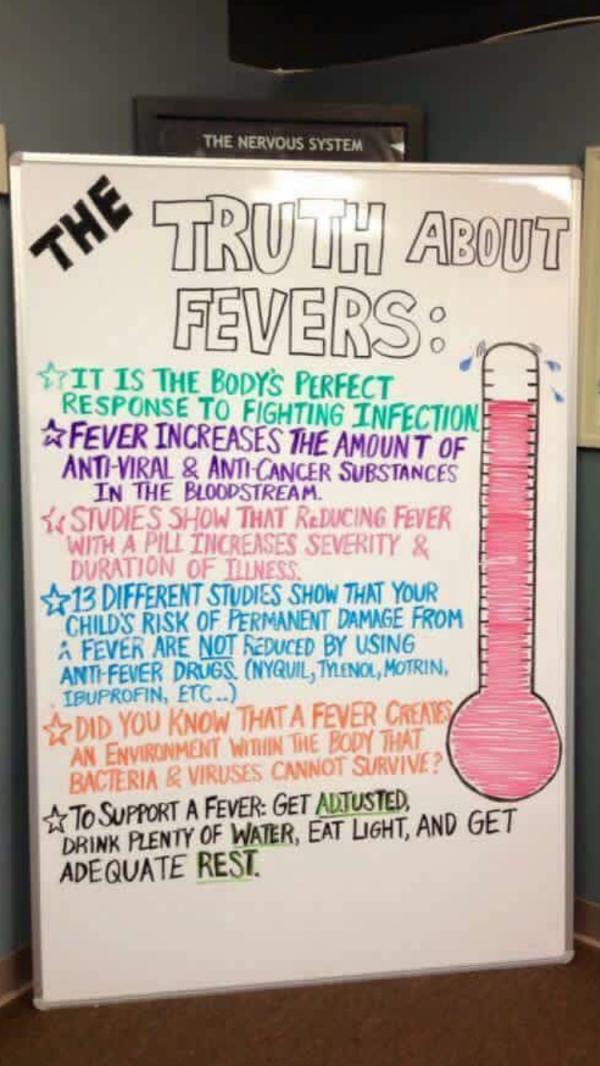 THE NERVOUS SYSTEM
THE TRUTH ABOUT
FEVERS:
IT IS THE BODY'S PERFECT
RESPONSE TO FIGHTING INFECTION
FEVER INCREASES THE AMOUNT OF
ANTI-VIRAL & ANTI-CANCER SUBSTANCES
IN THE BLOODSTREAM.
STUDIES SHOW THAT REDUCING FEVER
WITH A PILL INCREASES SEVERITY &
DURATION OF ILLNESS.
13 DIFFERENT STUDIES SHOW THAT YOUR
CHILD'S RISK OF PERMANENT DAMAGE FROM
A FEVER ARE NOT REDUCED BY USING
ANTI-FEVER DRUGS. (NYQUIL, TYLENOL, MOTRIN,
IBUPROFIN, ETC..)
DID YOU KNOW THAT A FEVER CREATES
AN ENVIRONMENT WITHIN THE BODY THAT
BACTERIA & VIRUSES CANNOT SURVIVE?
TO SUPPORT A FEVER: GET ADJUSTED,
DRINK PLENTY OF WATER, EAT LIGHT, AND GET
ADEQUATE REST.